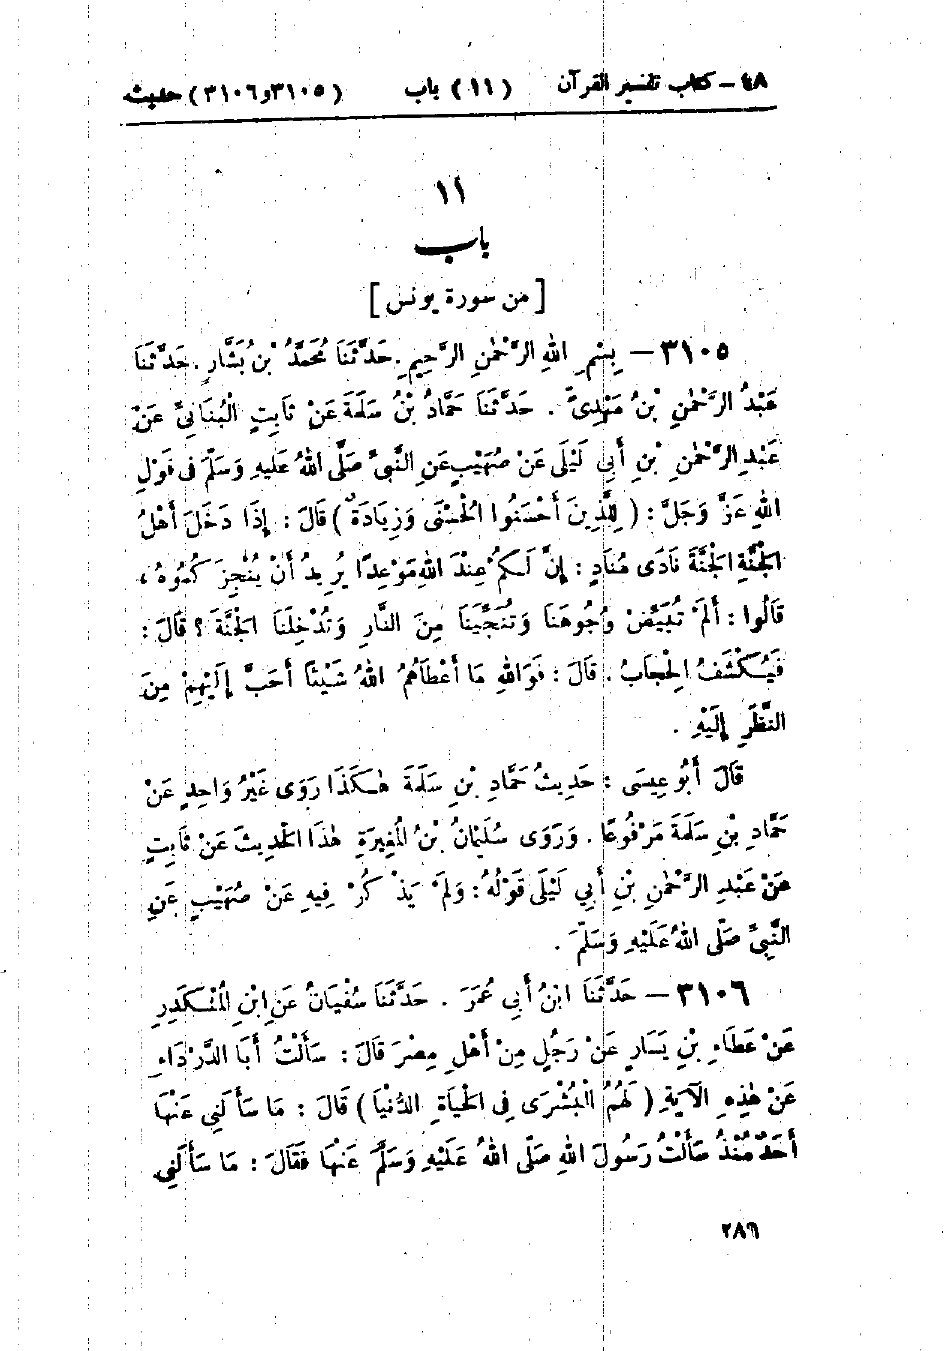 ٤٨ – كتاب تفسير القرآن (١١) باب (٣١٠٥ و٣١٠٦) حديث
١١
باب
[من سورة يونس]
٣١٠٥ – بِسْمِ اللهِ الرَّحْمٰنِ الرَّحِيمِ. حَدَّثَنَا مُحَمَّدُ بْنُ بَشَّارٍ. حَدَّثَنَا
عَبْدُ الرَّحْمٰنِ بْنُ مَهْدِىٍّ. حَدَّثَنَا حَمَّادُ بْنُ سَلَمَةَ عَنْ ثَابِتٍ الْبُنَانِىِّ عَنْ
عَبْدِ الرَّحْمٰنِ بْنِ أَبِى لَيْلَى عَنْ صُهَيْبٍ عَنِ النَّبِىِّ صَلَّى اللهُ عَلَيْهِ وَسَلَّمَ فِى قَوْلِ
اللهِ عَزَّ وَجَلَّ: (لِلَّذِينَ أَحْسَنُوا الْحُسْنَى وَزِيَادَةٌ) قَالَ: إِذَا دَخَلَ أَهْلُ
الْجَنَّةِ الْجَنَّةَ نَادَى مُنَادٍ: إِنَّ لَكُمْ عِنْدَ اللهِ مَوْعِدًا يُرِيدُ أَنْ يُنْجِزَ كُمُوهُ،
قَالُوا: أَلَمْ تُبَيِّضْ وُجُوهَنَا وَتُنَجِّينَا مِنَ النَّارِ وَتُدْخِلْنَا الْجَنَّةَ؟ قَالَ:
فَيُكْشَفُ الْحِجَابُ. قَالَ: فَوَاللهِ مَا أَعْطَاهُمُ اللهُ شَيْئًا أَحَبَّ إِلَيْهِمْ مِنَ
النَّظَرِ إِلَيْهِ.
قَالَ أَبُو عِيسَى: حَدِيثُ حَمَّادِ بْنِ سَلَمَةَ هٰكَذَا رَوَى غَيْرُ وَاحِدٍ عَنْ
حَمَّادِ بْنِ سَلَمَةَ مَرْفُوعًا. وَرَوَى سُلَيْمَانُ بْنُ الْمُغِيرَةِ هٰذَا الْحَدِيثَ عَنْ ثَابِتٍ
عَنْ عَبْدِ الرَّحْمٰنِ بْنِ أَبِي لَيْلَى قَوْلَهُ: وَلَمْ يَذْكُرْ فِيهِ عَنْ صُهَيْبٍ عَنِ
النَّبِىِّ صَلَّى اللهُ عَلَيْهِ وَسَلَّمَ.
٣١٠٦ – حَدَّثَنَا ابْنُ أَبِى عُمَرَ. حَدَّثَنَا سُفْيَانُ عَنِ ابْنِ الْمُنْكَدِرِ
عَنْ عَطَاءِ بْنِ يَسَارٍ عَنْ رَجُلٍ مِنْ أَهْلِ مِصْرَ قَالَ: سَأَلْتُ أَبَا الدَّرْدَاءِ
عَنْ هٰذِهِ الْآيَةِ (لَهُمُ الْبُشْرَى فِى الْحَيَاةِ الدُّنْيَا) قَالَ: مَا سَأَلَنِي عَنْهَا
أَحَدٌ مُنْذُ سَأَلْتُ رَسُولَ اللهِ صَلَّى اللهُ عَلَيْهِ وَسَلَّمَ عَنْهَا فَقَالَ: مَا سَأَلَنِي
٢٨٦